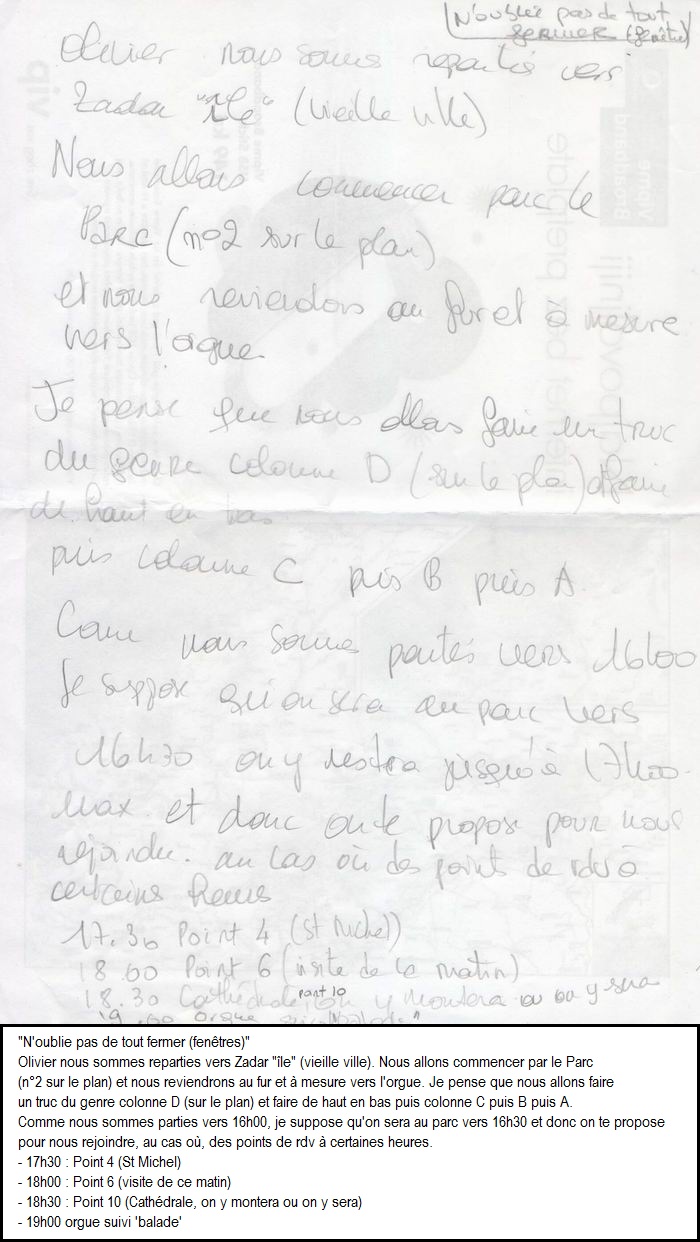 N'oublie pas de tout
fermer (fenêtre)
Olivier nous sommes reparties vers
Zadar "île" (vieille ville)
Nous allons commencer par le
Parc (no2 sur le plan)
et nous reviendons au fur et à mesure
vers l'orgue.
Je pense que nous allons faire un truc
du genre colonne D (sur le plan) et faire
de haut en bas
puis colonne C puis B puis A.
Comme nous sommes parties vers 16h00
Je suppose qu'on sera au parc vers
16h30 on y restera jusqu'à 17h00.
Max. et donc on te propose pour nous
rejoindre. au cas où des point de rdv à
certains heures
17.30 Point 4 (St Michel)
18.00 Point 6 (visite de ce matin)
18.30 Cathédrale, Point 10 on y montera ou on y sera
19.00 orgue suivi "balade"
"N'oublie pas de tout fermer (fenêtres)"
Olivier nous sommes reparties vers Zadar "île" (vieille ville). Nous allons commencer par le Parc
(n°2 sur le plan) et nous reviendrons au fur et à mesure vers l'orgue. Je pense que nous allons faire
un truc du genre colonne D (sur le plan) et faire de haut en bas puis colonne C puis B puis A.
Comme nous sommes parties vers 16h00, je suppose qu'on sera au parc vers 16h30 et donc on te propose
pour nous rejoindre, au cas où, des points de rdv à certaines heures.
- 17h30 : Point 4 (St Michel)
- 18h00 : Point 6 (visite de ce matin)
- 18h30 : Point 10 (Cathédrale, on y montera ou on y sera)
- 19h00 orgue suivi 'balade'